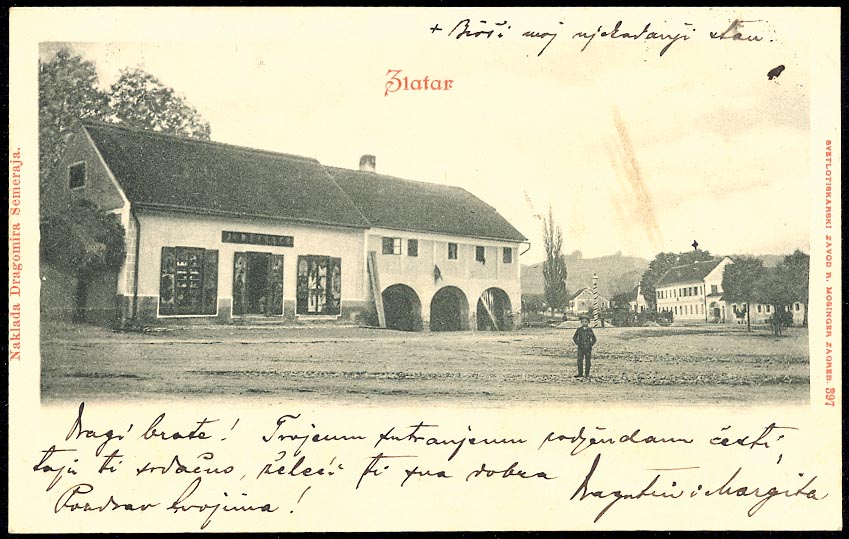 + Bivši moj njekadanji stan.
Zlatar
Naklada Dragomira Semeraja.
SVETLOTISKARSKI ZAVOD R. MOSINGER ZAGREB. 397
Dragi brate! Tvojemu sutranjemu rodjendanu česti,
taju ti srdačno, želeći ti sva dobra
Pozdrav Svojima!
Dragutin i Margita